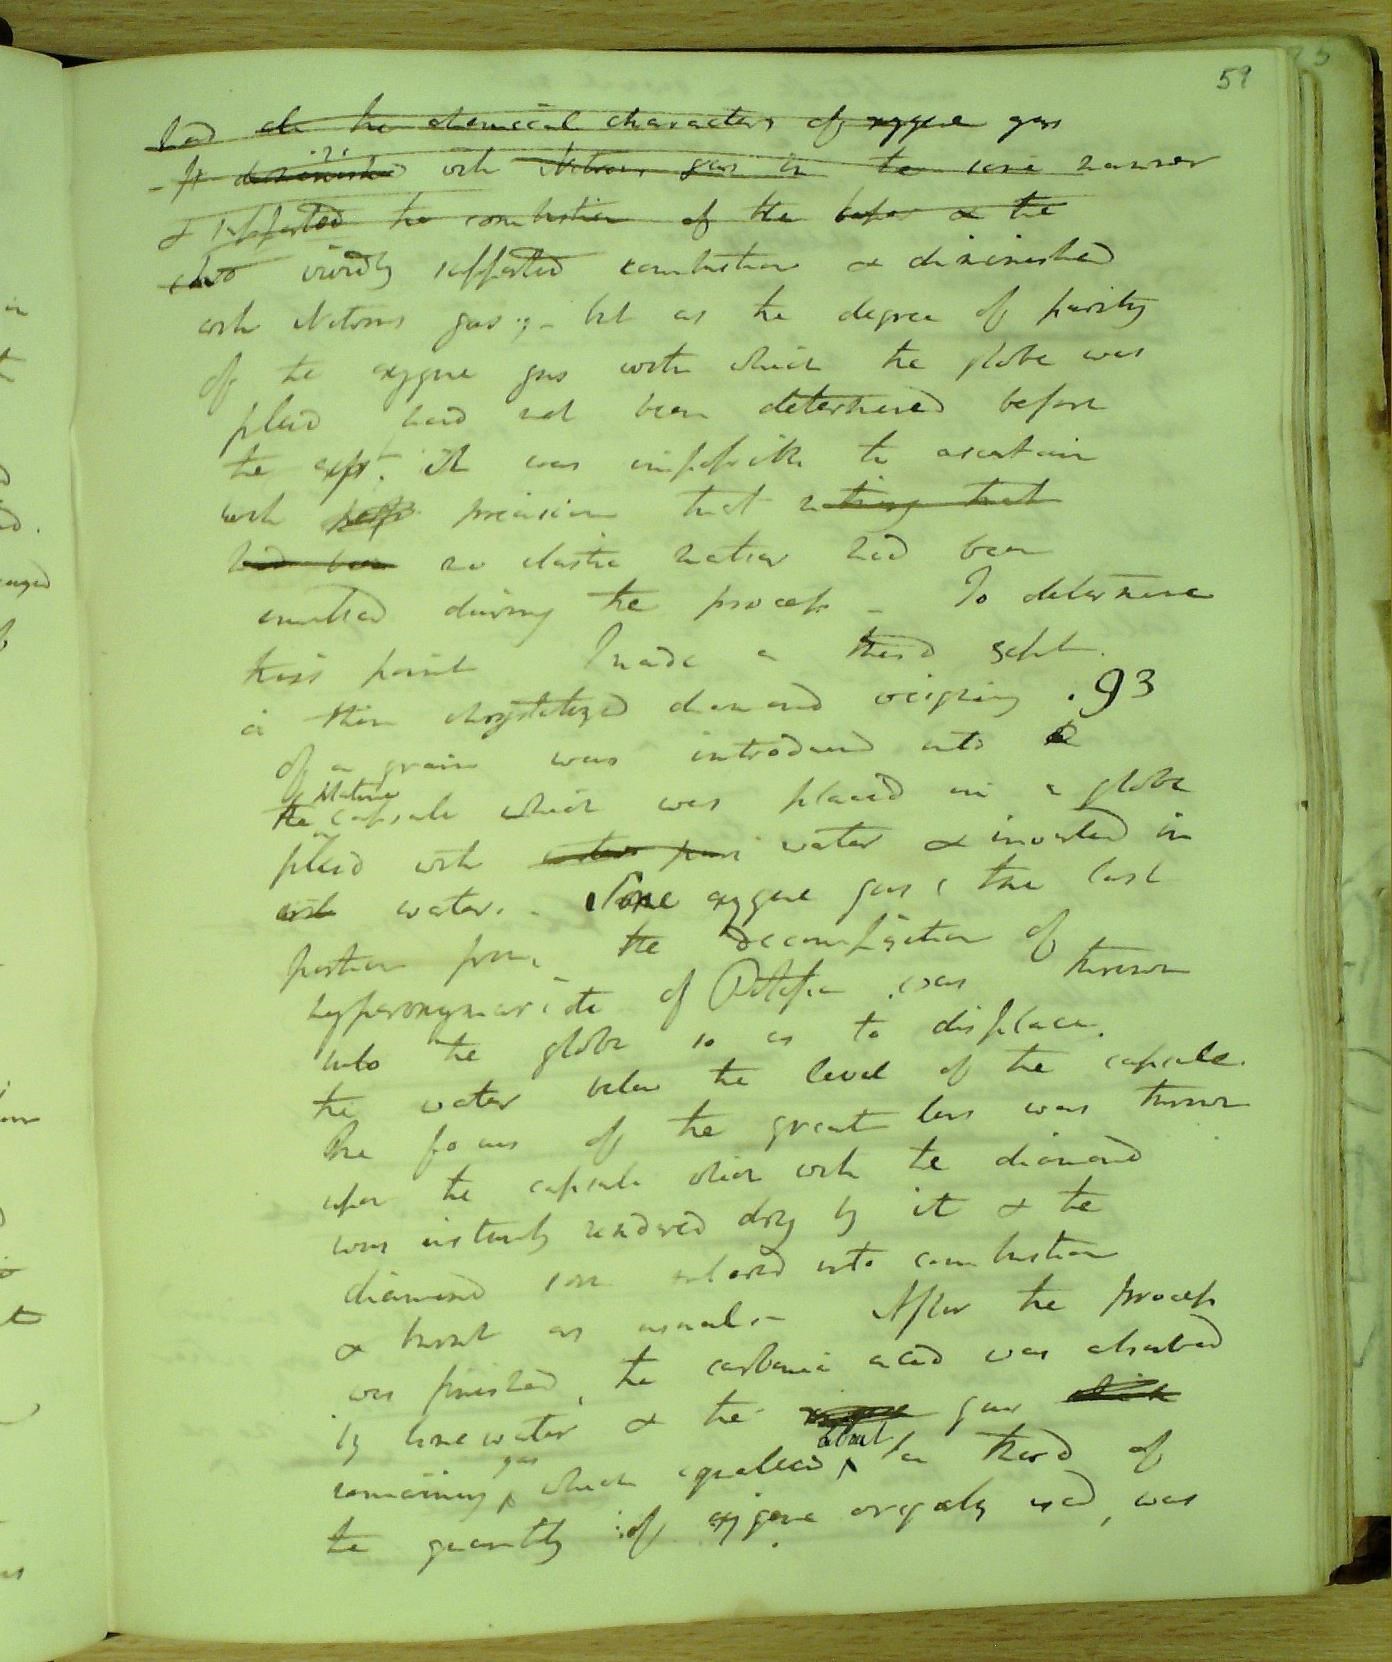 59
had all the chemical characters of oxygene gas
- It diminished with Nitrous gas in the same manner
& supported the combustion of the & the
also vividly supported combustion & diminished
with Nitrous gas; - but as the degree of purity
of the oxygene gas with which the globe was
filled had not been determined before
the expt. it was impossible to ascertain
with precision that nothing that
had been no elastic matter had been
emitted during the process - To determine
this point I made a third expt.
a thin chrystalized diamond weighing .93
of a grain was introduced into a
the Platina capsule which was placed in a globe
filled with water & inverted in
with water. - Some oxygene gas, the last
portion from the decomposition of
hyperoxymuriate of Potassa was thrown
into the globe so as to displace
the water below the level of the capsule.
The focus of the great lens was thrown
upon the capsule which with the diamond
was instantly rendered dry by it & the
diamond soon entered into combustion
& burnt as usual. - After the process
was finished, the carbonic acid was absorbed
by lime water & the gas which
remaining gas which equalled about two third of
the quantity of oxygene originally used, was